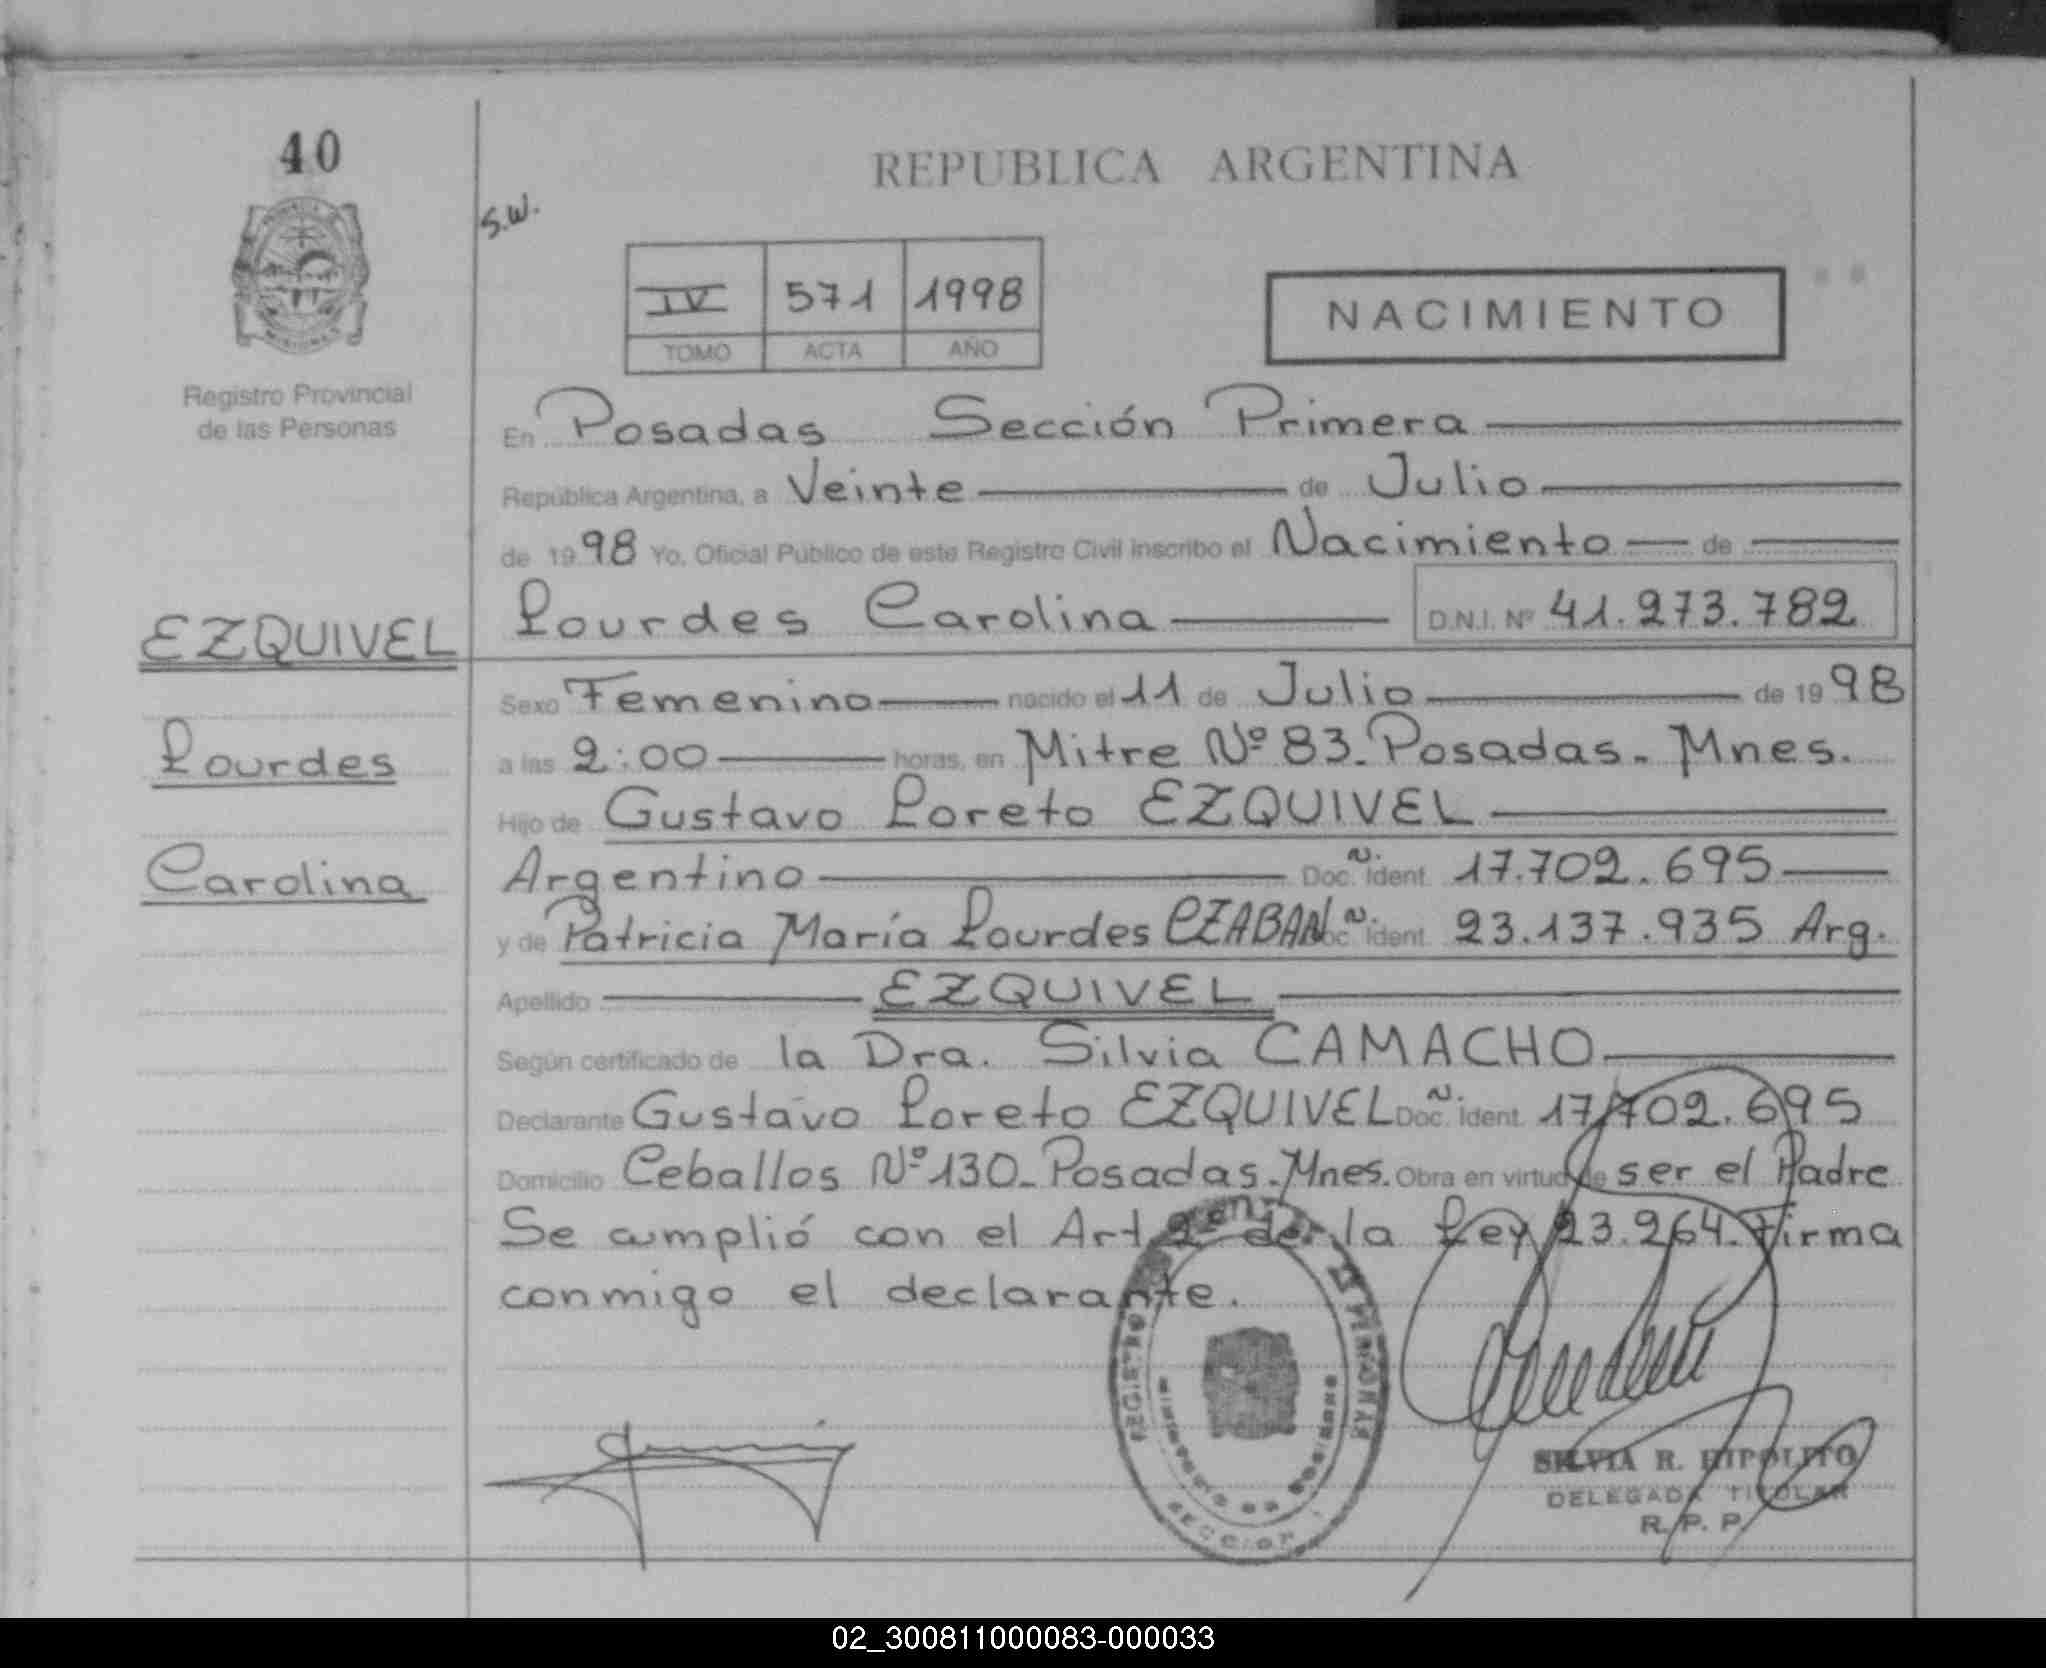 40
REPUBLICA ARGENTINA
S.W.
IV 571 1998
TOMO ACTA AÑO
NACIMIENTO
Registro Provincial
de las Personas
En Posadas Sección Primera
República Argentina, a Veinte de Julio
de 1998 Yo, Oficial Público de este Registro Civil inscribo el Nacimiento de
Lourdes Carolina D.N.I. Nº 41.273.782
EZQUIVEL
Lourdes
Carolina
Sexo Femenino nacido el 11 de Julio de 1998
a las 2:00 horas, en Mitre Nº 83. Posadas. Mnes.
Hijo de Gustavo Loreto EZQUIVEL
Argentino Doc. Ident. 17.702.695
y de Patricia María Lourdes CZABAN Doc. Ident. 23.137.935 Arg.
Apellido EZQUIVEL
Según certificado de la Dra. Silvia CAMACHO
Declarante Gustavo Loreto EZQUIVEL Doc. Ident. 17.702.695
Domicilio Ceballos Nº 130. Posadas. Mnes. Obra en virtud de ser el Padre
Se cumplió con el Art. 2º de la Ley 23.264. Firma
conmigo el declarante.
SECCION
SILVIA R. HIPOLITO
DELEGADA TITULAR
R. P. P.
02_300811000083-000033